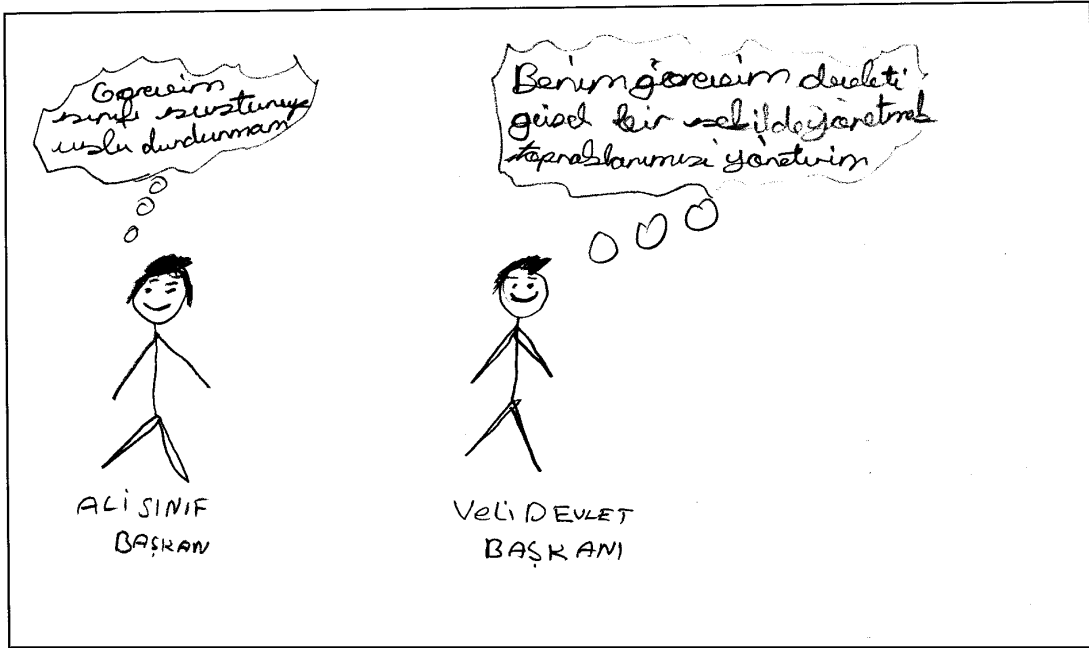 Görevim
sınıfı susturup
uslu durdurmam
Benim görevim devleti
güzel bir şekilde yönetmek
topraklarımızı yönetirim
ALİ SINIF
BAŞKAN
VELİ DEVLET
BAŞKANI